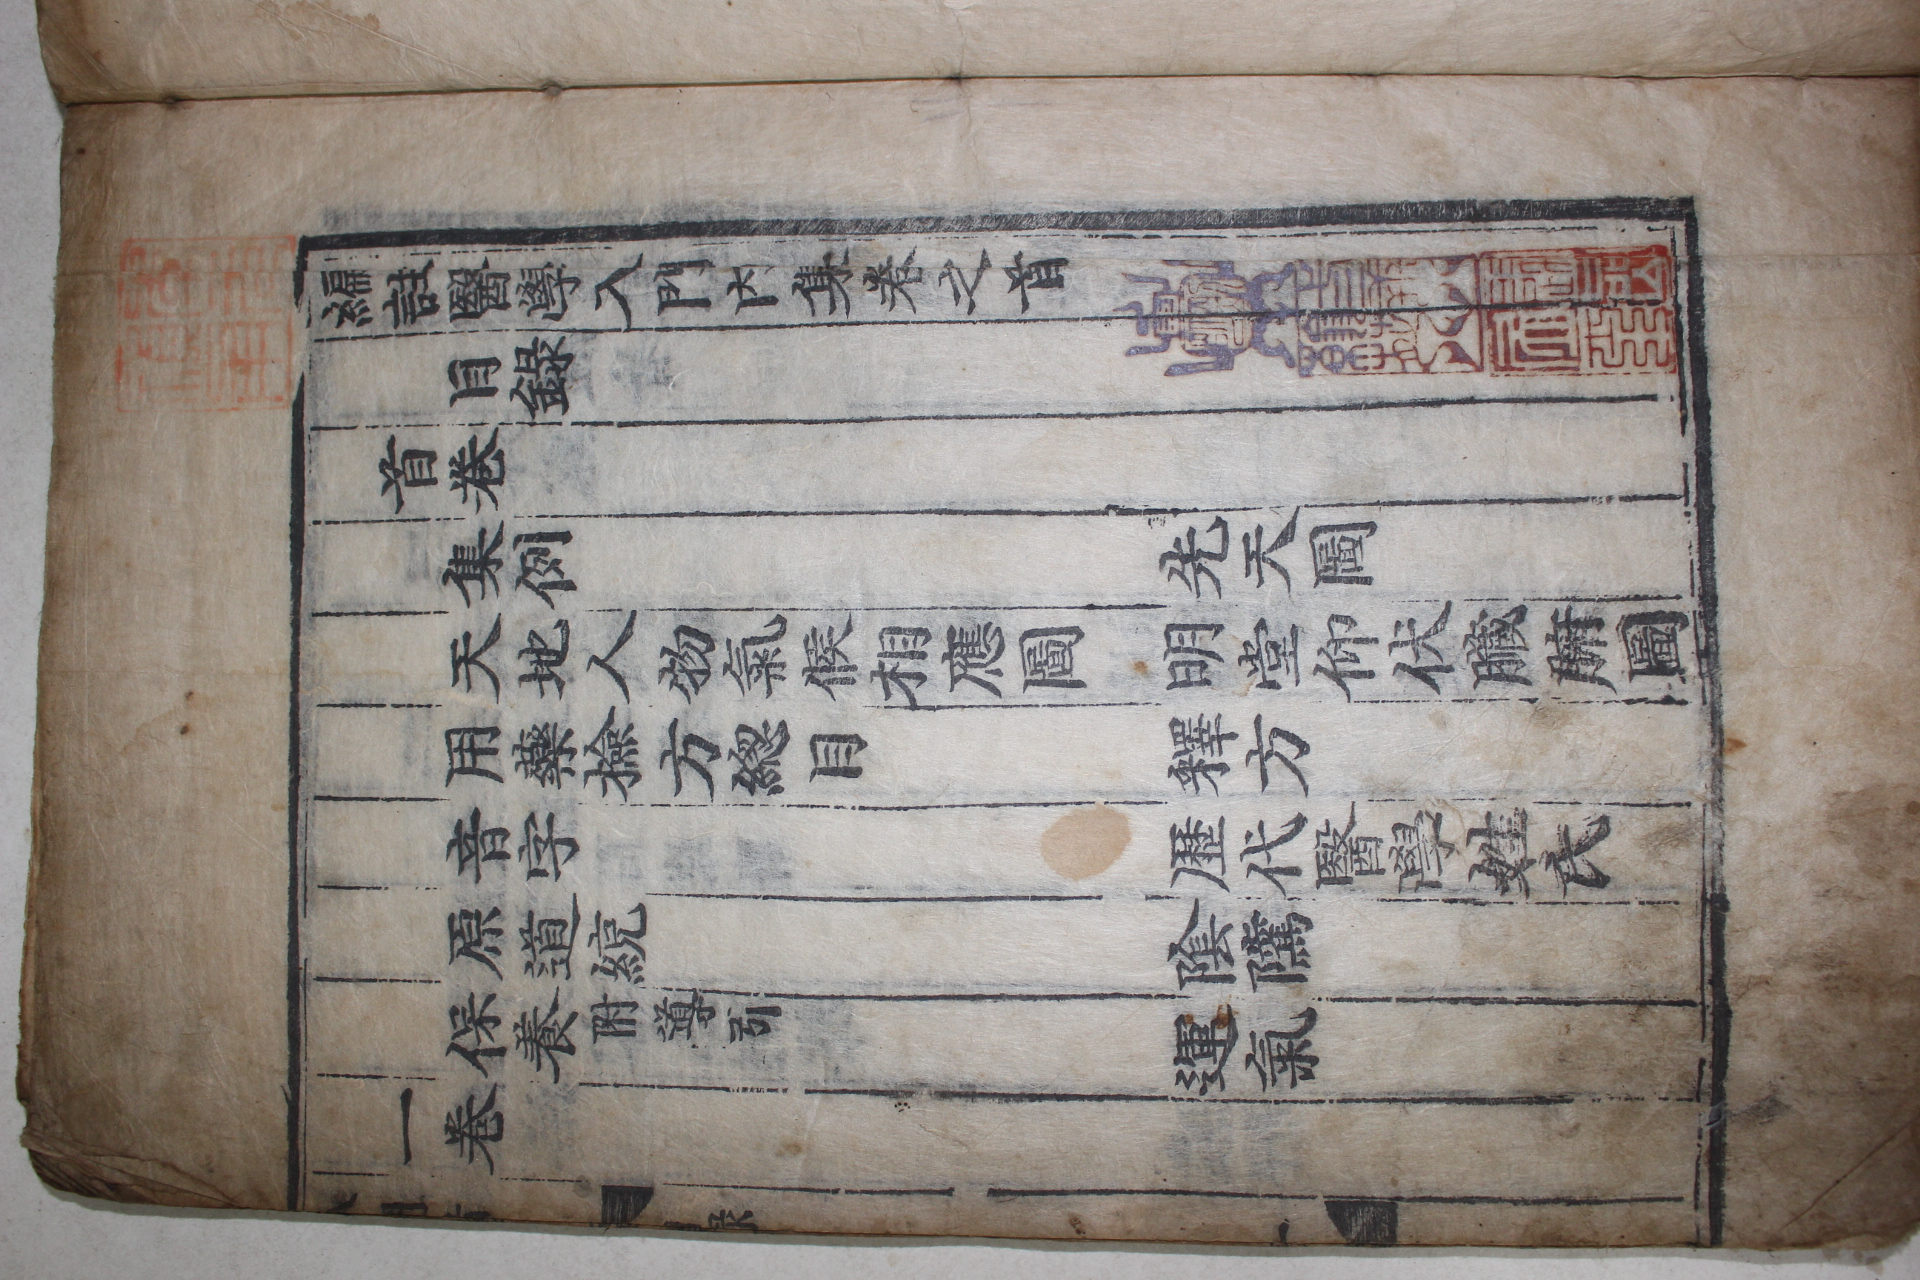 編註醫學入門內集卷之首
目錄
首卷
集例 先天圖
天地人物氣候相應圖 明堂仰伏臟腑圖
用藥撿方總目 釋方
音字 歷代醫學姓氏
原道統 陰隲
保養附導引 運氣
一卷